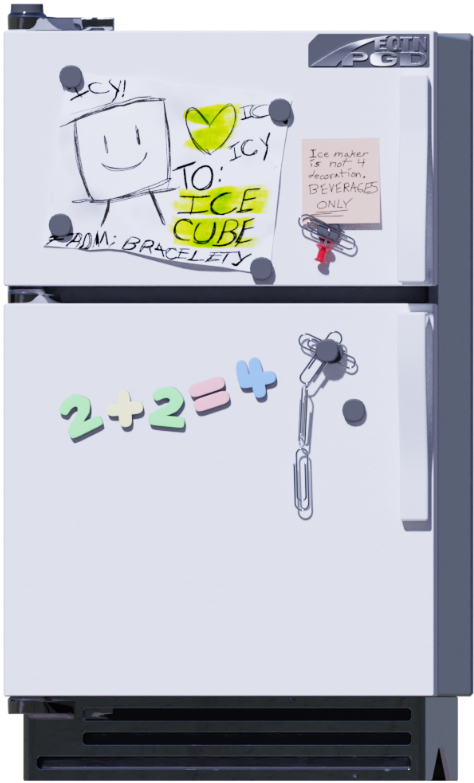 EQTN
PGD
ICY!
IC
ICY
TO:
ICE
CUBE
FROM: BRACELETY
Ice maker
is not 4
decoration.
BEVERAGES
ONLY
2+2=4